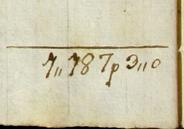 7„ 787p 3„0